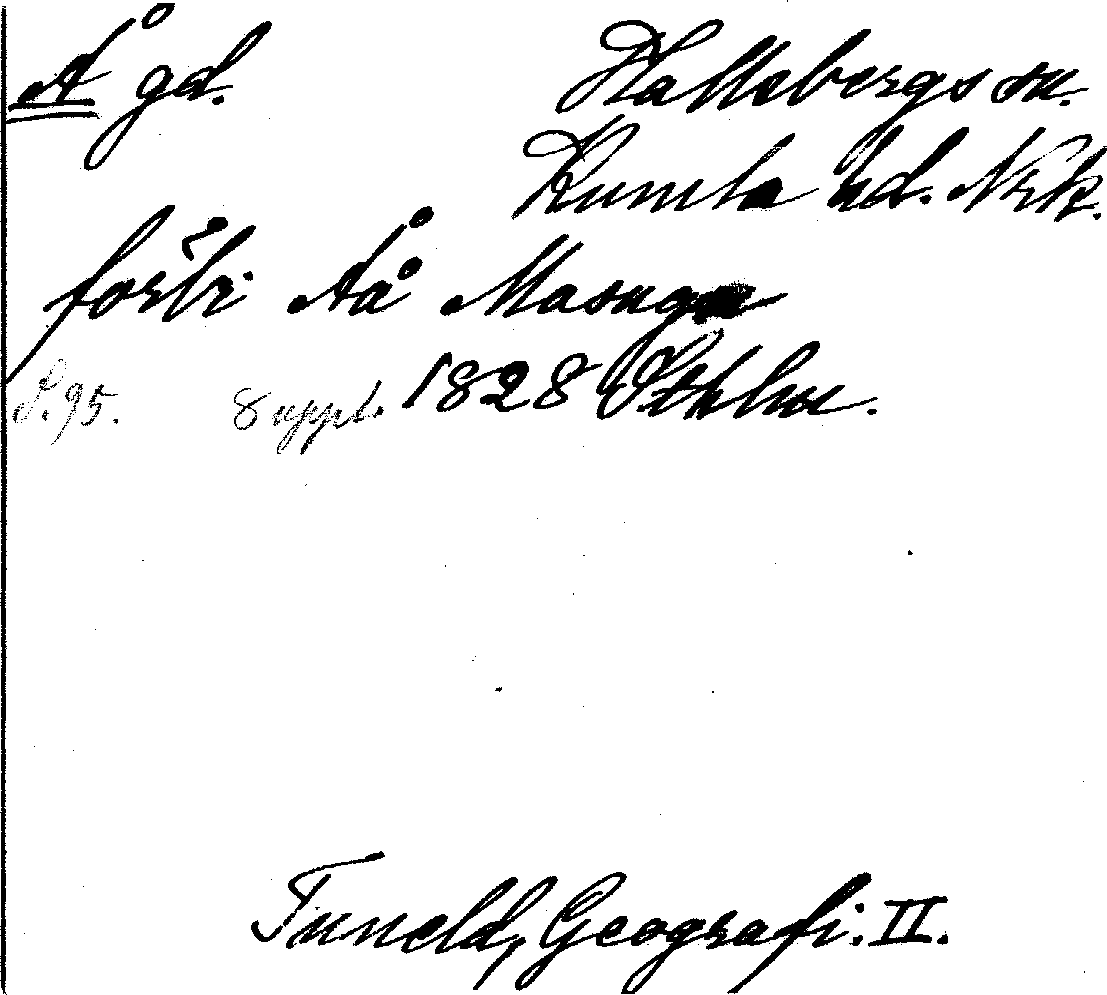 Å gd. Hallsbergs sn.
Kumla hd. Nrk.
förbi Aå Masugn
S. 95. 8 uppl. 1828 Sthlm.
Tuneld, Geografi. II.